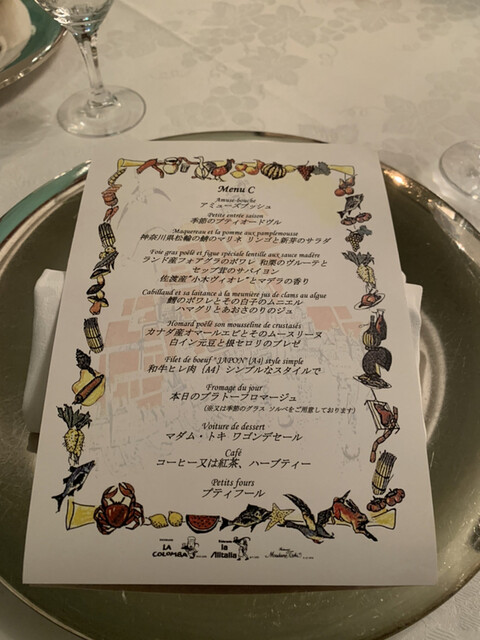 Menu C
Amuse-bouche
アミューズブッシュ
Petite entrée saison
季節のプティオードヴル
Maquereau et la pomme aux pamplemousse
神奈川県松輪の鯖のマリネ リンゴと新芽のサラダ
Foie gras poêlé et figue spéciale lentille aux sauce madère
ランド産フォアグラのポワレ 和栗のヴルーテと
セップ茸のサバイヨン
佐渡産"小木ヴィオレ"とマデラの香り
Cabillaud et sa laitance à la meunière jus de clams au algue
鱈のポワレとその白子のムニエル
ハマグリとあおさのりのジュ
Homard poêlé son mousseline de crustasés
カナダ産オマールエビとそのムースリーヌ
白イン元豆と根セロリのブレゼ
Filet de boeuf "JAPON" {A4} style simple
和牛ヒレ肉 {A4} シンプルなスタイルで
Fromage du jour
本日のプラトーフロマージュ
(又は季節のグラス ソルベをご用意しております)
Voiture de dessert
マダム・トキ ワゴンデセール
Café
コーヒー又は紅茶、ハーブティー
Petits fours
プティフール
LA COLOMBA
la Alitalia
Madame Toki